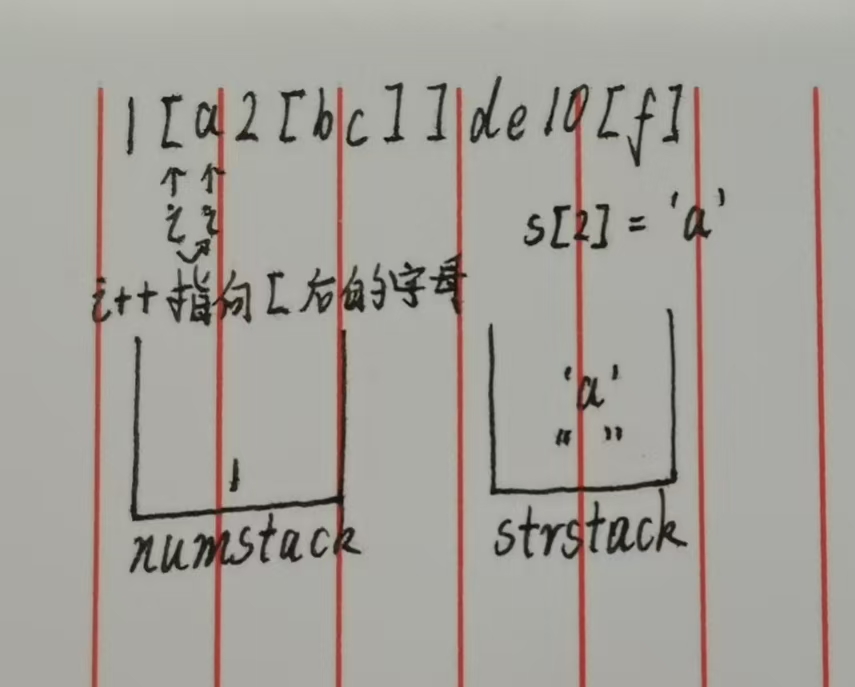 1[a2[bc]]de10[f]
↑ ↑
i i
s[2] = 'a'
i++指向[后的字母
'a'
" "
1
numstack
strstack